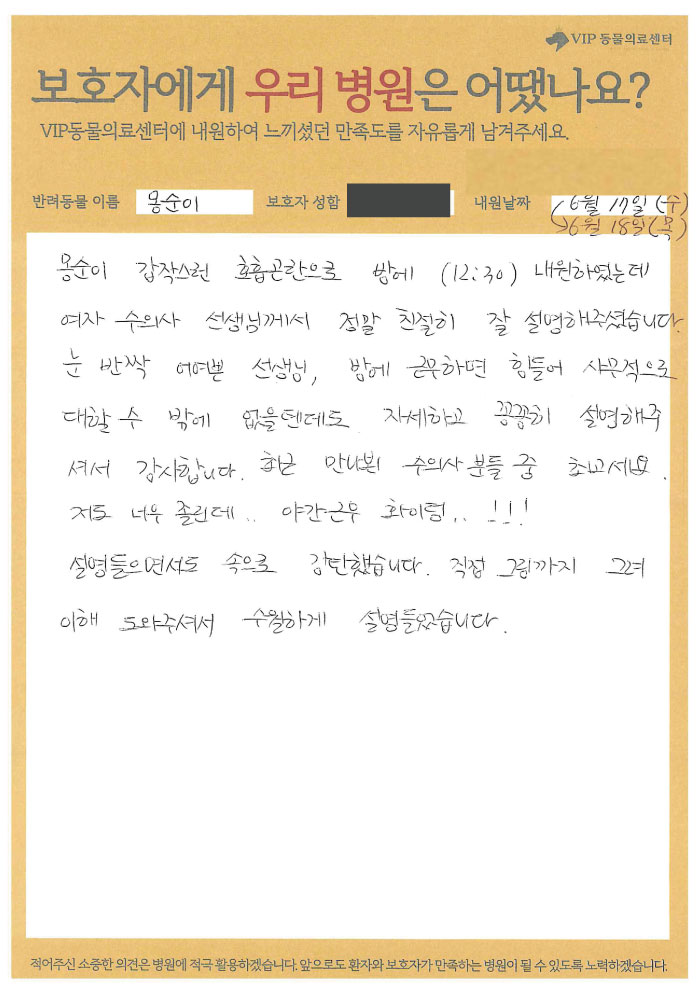 VIP 동물의료센터
보호자에게 우리 병원은 어땠나요?
VIP동물의료센터에 내원하여 느끼셨던 만족도를 자유롭게 남겨주세요.
반려동물 이름 몽순이 보호자 성함 내원날짜 6월 17일(수)
6월 18일(목)
몽순이 갑작스런 호흡곤란으로 밤에 (12:30) 내원하였는데
여자 수의사 선생님께서 정말 친절히 잘 설명해주셨습니다.
눈 반짝 어여쁜 선생님, 밤에 근무하면 힘들어 사무적으로
대할 수 밖에 없을텐데도 자세하고 꼼꼼히 설명해주
셔서 감사합니다. 최근 만나본 수의사 분들 중 최고세요.
저도 너무 졸린데.. 야간근무 화이팅.. !!!
설명들으면서도 속으로 감탄했습니다. 직접 그림까지 그려
이해 도와주셔서 수월하게 설명들었습니다.
적어주신 소중한 의견은 병원에 적극 활용하겠습니다. 앞으로도 환자와 보호자가 만족하는 병원이 될 수 있도록 노력하겠습니다.